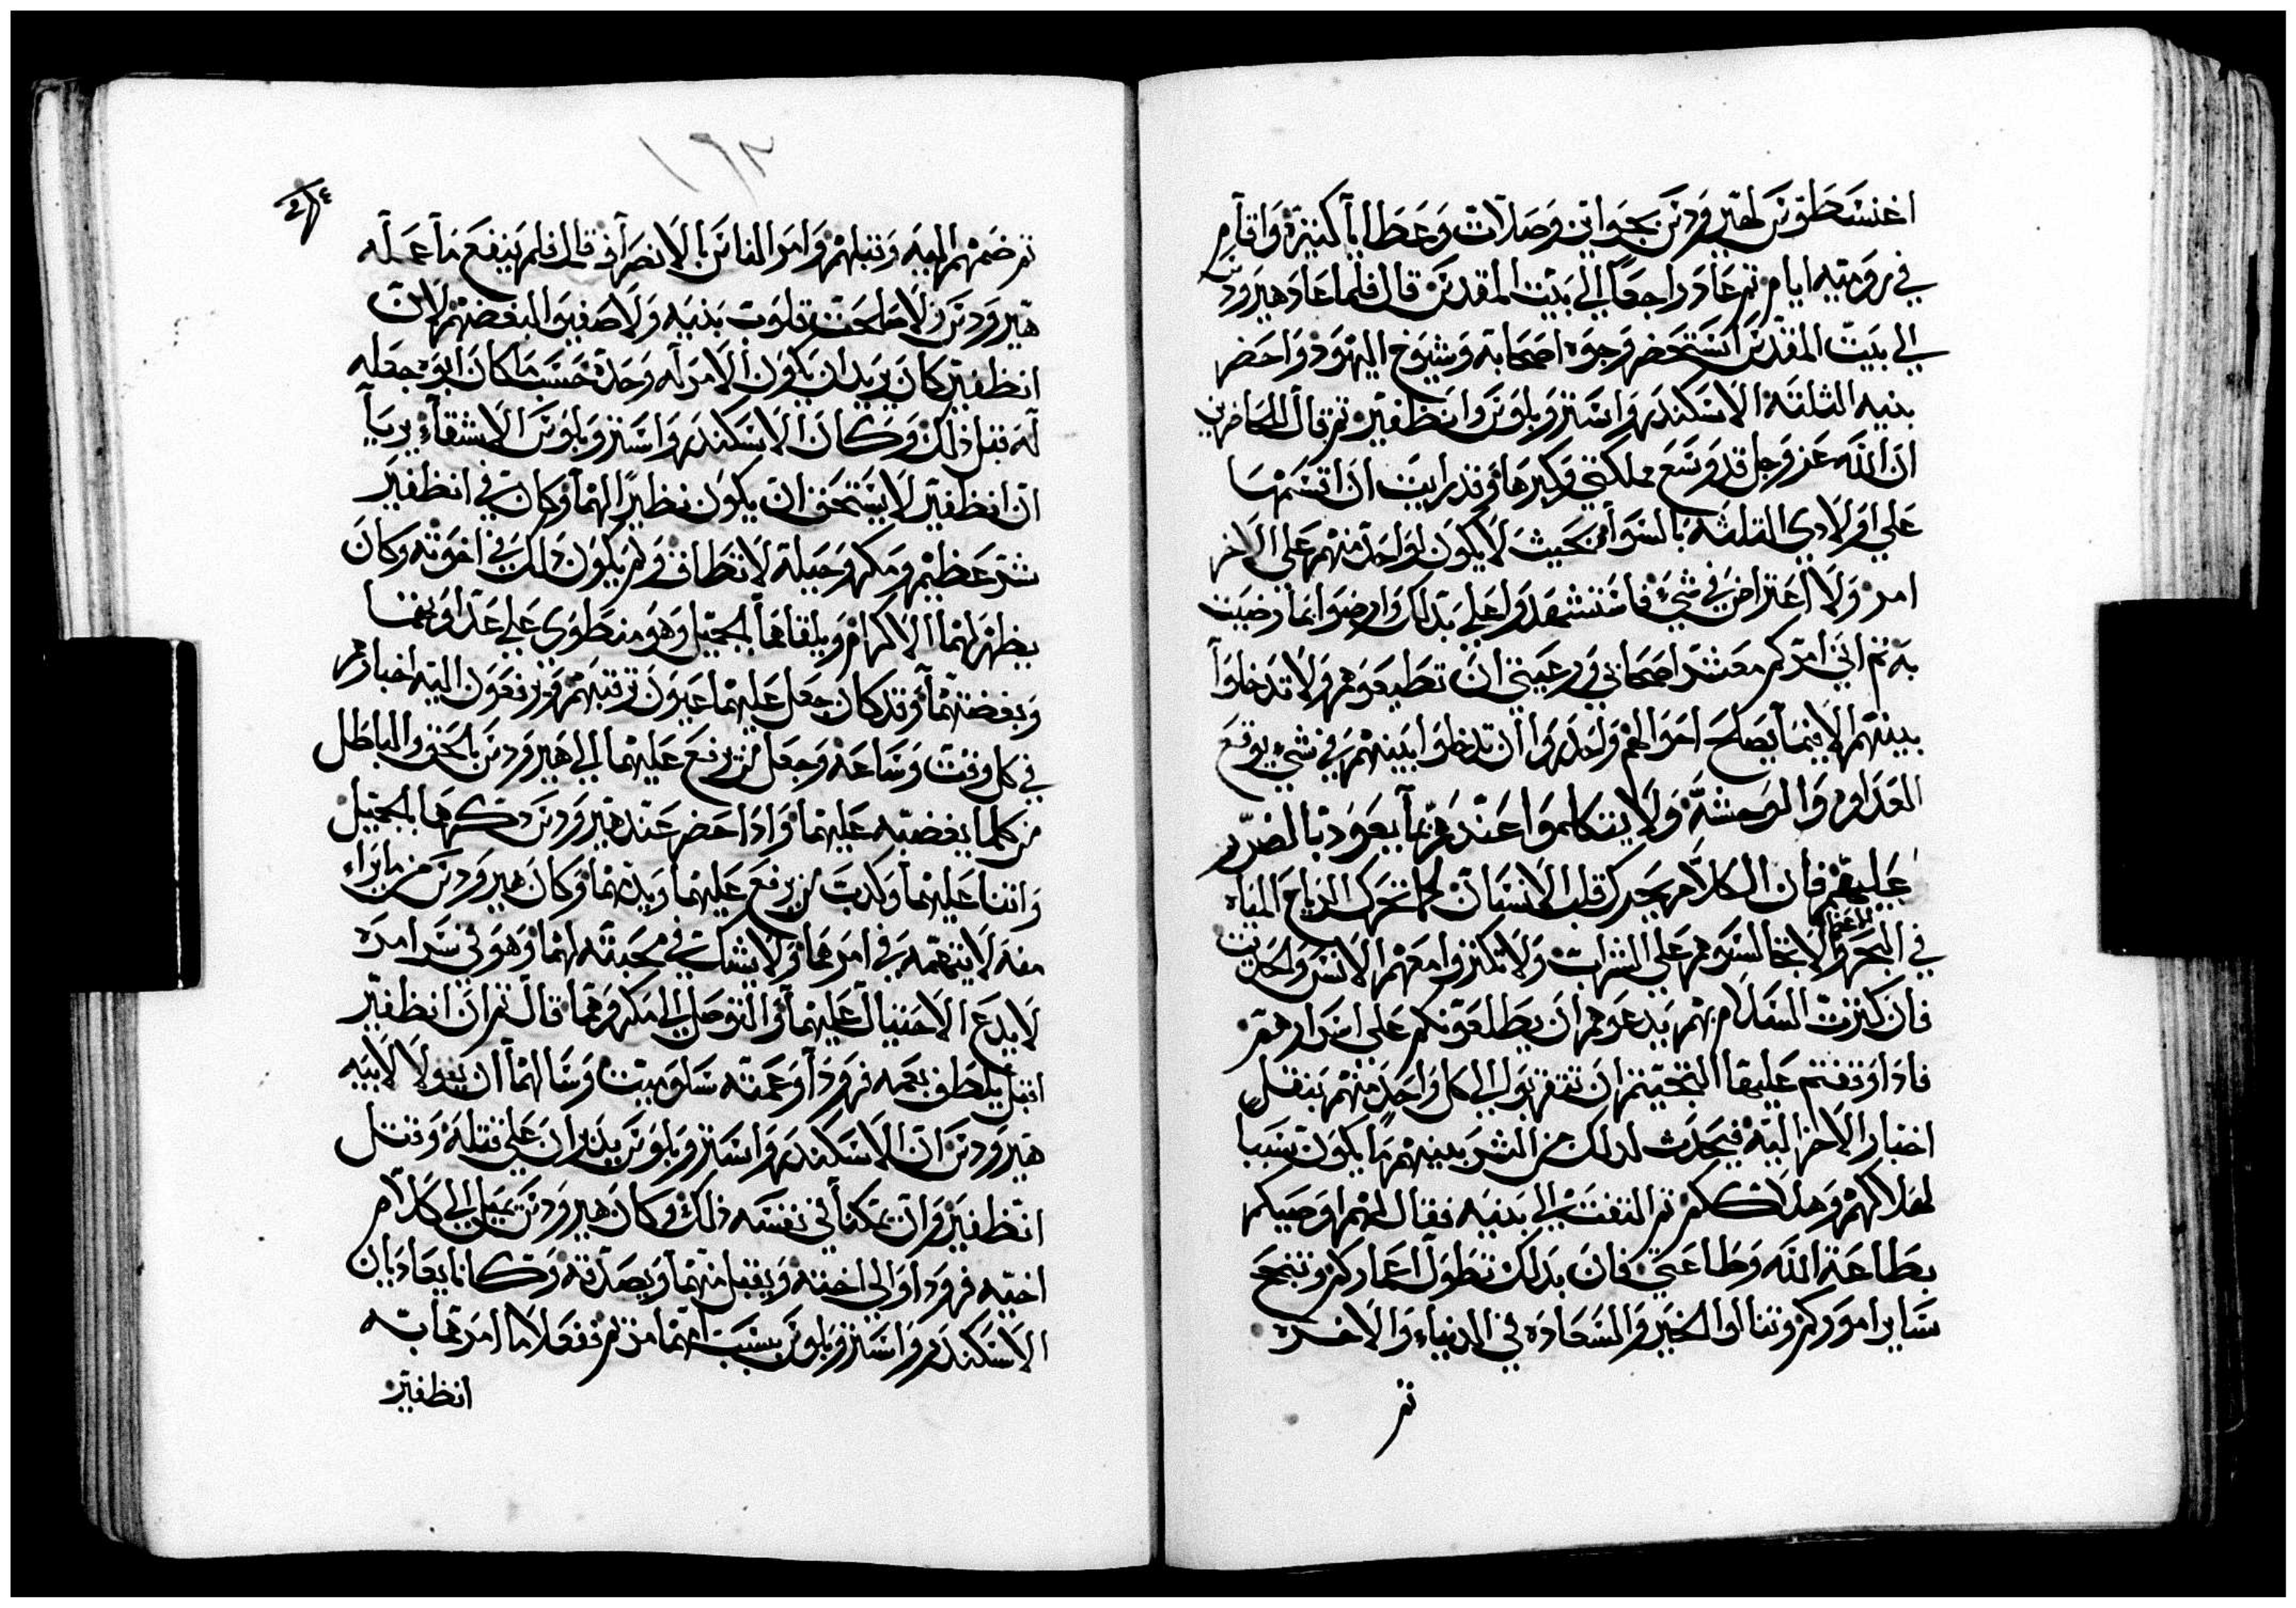 اغنسطوس لهيرودس بجوايز وصلات وعطايا كثيرة واقام
في رومية ايام ثم عاد راجعا الي بيت المقدس قال فلما عاد هيرودس
الي بيت المقدس استحضر وجوه اصحابه وشيوخ اليهود واحضر
بنيه الثلثة الاسكندر واسترو بلوس وانظفير ثم قال للحاضرين
ان الله عز وجل قد وسع مملكتي وكبرها وقد رايت ان اقسمها
علي اولادي الثلثه بالسوا بحيث لا يكون لواحد منهم علي الاخر
امر ولا اعتراض في شي فاستشهدوا علي بذلك وارضوا بما رضيت
به ثم اني امركم معشر اصحابي ورعيتي ان تطيعوهم ولا تدخلوا
بينهم الا فيما يصلح احوالهم واحدروا ان تدخلوا بينهم في شي يوقع
العداوه والوحشة ولا يتكلموا عندهم بما يعود بالضرر
عليهم فان الكلام يحرك قلب الانسان كما تحرك الرياح المياه
في البحر ولا تجالسوهم علي الشراب ولا تكثروا معهم الانس والحديث
فان كثرت السلام بهم يدعوهم ان يطلعونكم علي اسرارهم
فادا وقفتم عليها التجيتم ان تتقربوا الي كل واحد منهم بنقل
اخبار الاخر اليه فيحدث لدلك من الشر بينهم ما يكون سببا
لهلاكهم وهلاككم ثم التفت الي بنيه فقال لهم اوصيكم
بطاعة الله وطاعتي فان بدلك تطول اعماركم وتنجح
ساير اموركم وتنالوا الخير والسعاده في الدنياء والاخره
ثم
٢٦١
ثم ضمهم اليه وقبلهم وامر الناس بالانصراف قال فلم ينفع ما عمله
هيرودس ولا صلحت قلوب بنيه ولا صفيوا لبعضهم لان
انظفير كان يريد ان يكون الامر له وحده حسب ما كان ابوه جعله
له قبل ذلك وكان الاسكندر واسترو بلوس الاشقاء يريا
ان انظفير لا يستحق ان يكون نظيرا لهما وكان في انظفير
شر عظيم ومكر وحيلة لا تطاق ولم يكون ذلك في اخوته وكان
يظهر لهما الاكرام ويلقاهما بالجميل وهو منطوي علي عداوتهما
وبغضتهما وقد كان جعل عليهما عيون ترقبهم ويرفعون اليه اخبارهم
في كل وقت وساعه وجعل من يرفع عليهما الي هيرودس بالحق والباطل
من كلما يغضبه عليهما وادا حضر عند هيرودس دكرهما بالجميل
واثنا عليهما وكدب من يرفع عليهما وبينهما وكان هيرودس من ما يراه
منه لا يتهمه في امرهما ولا يشك في محبته لهما وهو في سر امره
لا يدع الاحتيال عليهما والتوصل الي مكروهما قال ثم ان انظفير
اقبل يلطف بعمه فرودا وعمته سلوميت وسالهما ان يقولا لابيه
هيرودس ان الاسكندر واسترو بلوس يديران علي قتله وقتل
انظفير وان تمكنا في نفسه ذلك وكان هيرودس يميل الي كلام
اخيه فرودا والي اخته ويقبل منهما ويصدقه وكانا يعاديان
الاسكندر واسترو بلوس بسبب امهما مريم ففعلا ما امرهما به
انظفير